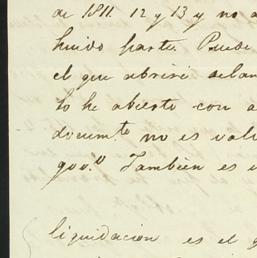 de 1811. 12 y 13 y no a
huido parte. Puede
el que abriré delan
lo he abierto con a
docum.to no es vali
gov.o También es i
liquidacion es el q